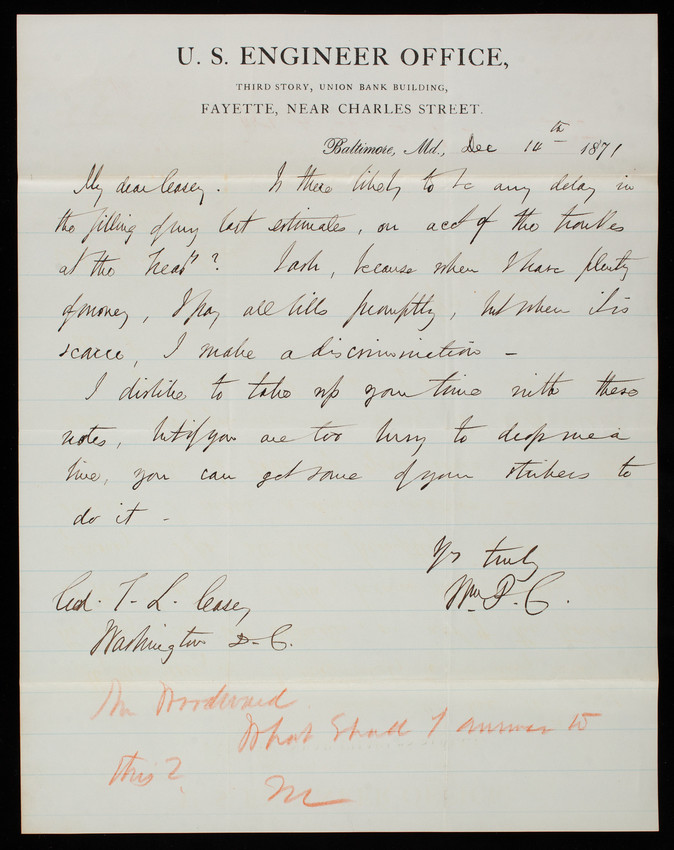 U. S. ENGINEER OFFICE,
THIRD STORY, UNION BANK BUILDING,
FAYETTE, NEAR CHARLES STREET.
Baltimore, Md., Dec 14th 1871
My dear Casey. Is there likely to be any delay in
the filling of my last estimates, on acct of the troubles
at the Treasy? I ask, because when I have plenty
of money, I pay all bills promptly, but when it is
scarce, I make a discrimination –
I dislike to take up your time with these
notes, but if you are too busy to drop me a
line, you can get some of your strikers to
do it –
Yr truly
Wm P. C.
Col. T. L. Casey
Washington D. C.
Mr Woodward
What Shall I answer to
this?